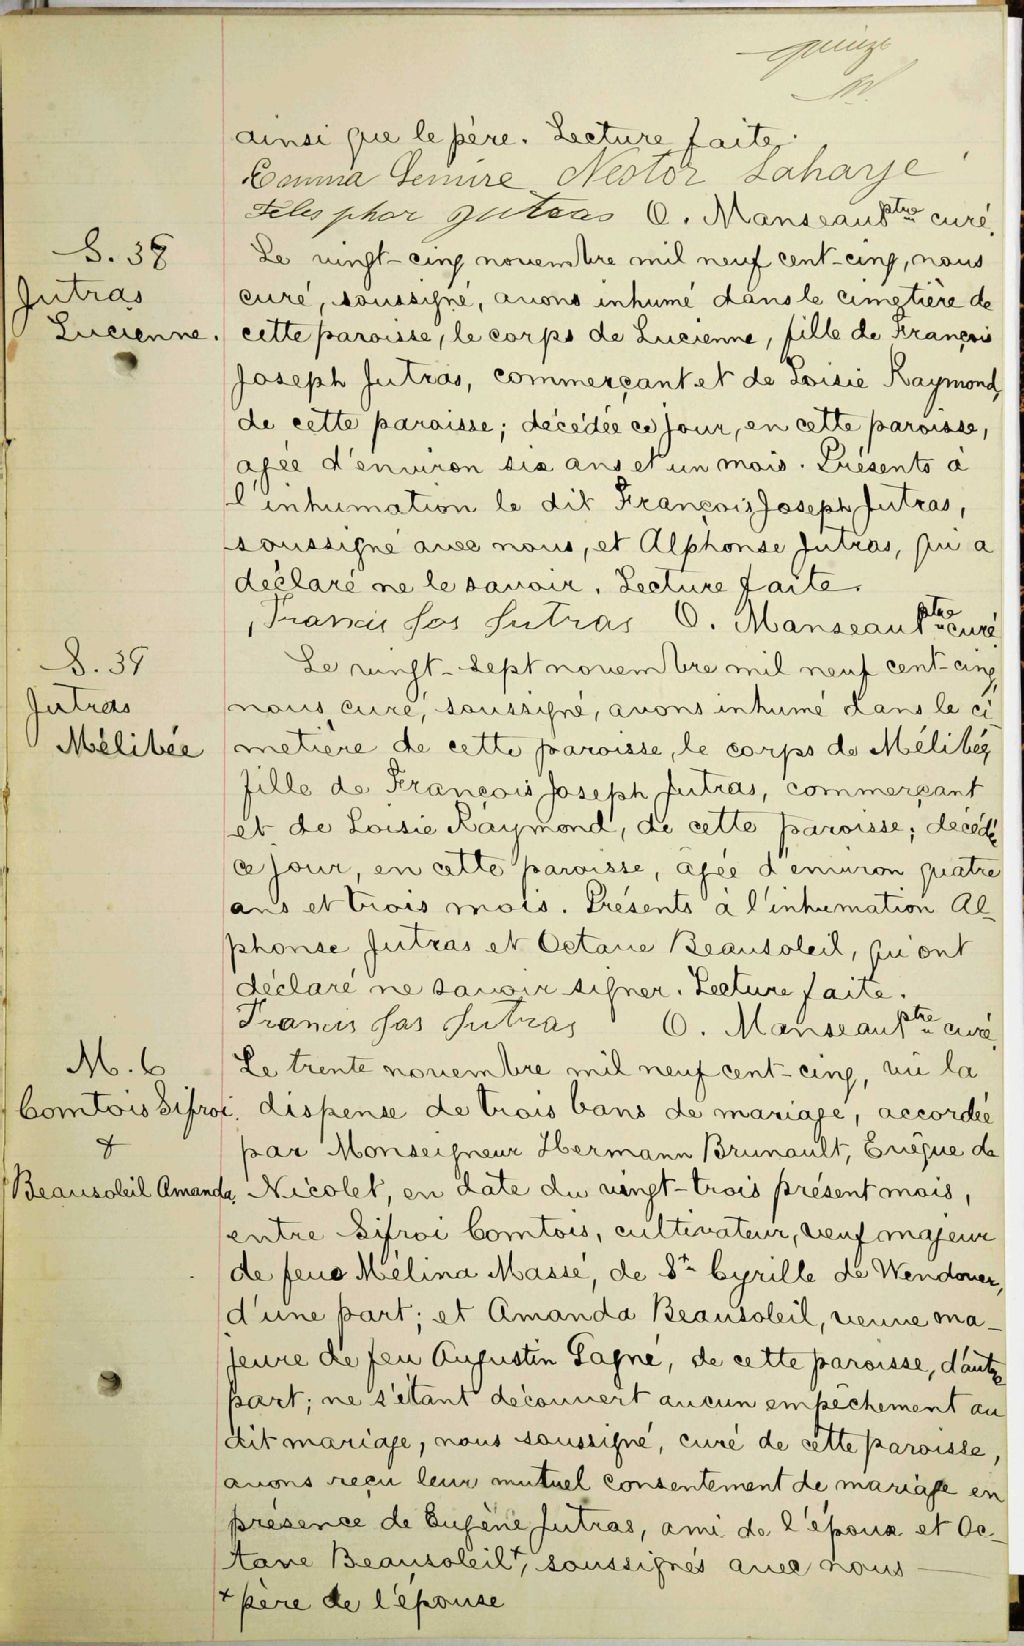 quinze
ainsi que le père. Lecture faite.
Emma Lemire Nestor Laharje
Telesphor Jutras O. Manseau ptre curé.
S. 38
Jutras
Lucienne.
Le vingt-cinq novembre mil neuf cent-cinq, nous
curé, soussigné, avons inhumé dans le cimetière de
cette paroisse, le corps de Lucienne, fille de François
Joseph Jutras, commerçant et de Loisie Raymond,
de cette paroisse; décédée ce jour, en cette paroisse,
agée d'environ six ans et un mois. Présents à
l'inhumation le dit François Joseph Jutras,
soussigné avec nous, et Alphonse Jutras, qui a
déclaré ne le savoir. Lecture faite.
Francis Jos Jutras O. Manseau ptre curé
S. 39
Jutras
Mélibée
Le vingt-sept novembre mil neuf cent-cinq,
nous, curé, soussigné, avons inhumé dans le ci-
metière de cette paroisse, le corps de Mélibée,
fille de François Joseph Jutras, commerçant
et de Loisie Raymond, de cette paroisse; décédée
ce jour, en cette paroisse, âgée d'environ quatre
ans et trois mois. Présents à l'inhumation Al-
phonse Jutras et Octave Beausoleil, qui ont
déclaré ne savoir signer. Lecture faite.
Francis Jos Jutras O. Manseau ptre curé.
M. 6
Comtois Sifroi.
&
Beausoleil Amanda.
Le trente novembre mil neuf cent-cinq, vu la
dispense de trois bans de mariage, accordée
par Monseigneur Hermann Brunault, Evêque de
Nicolet, en date du vingt-trois présent mois,
entre Sifroi Comtois, cultivateur, veuf majeur
de feue Mélina Massé, de St Cyrille de Wendover,
d'une part; et Amanda Beausoleil, veuve ma-
jeure de feu Augustin Gagné, de cette paroisse, d'autre
part; ne s'étant découvert aucun empêchement au
dit mariage, nous soussigné, curé de cette paroisse,
avons reçu leur mutuel consentement de mariage en
présence de Eugène Jutras, ami de l'époux et Oc-
tave Beausoleil+, soussignés avec nous
+ père de l'épouse